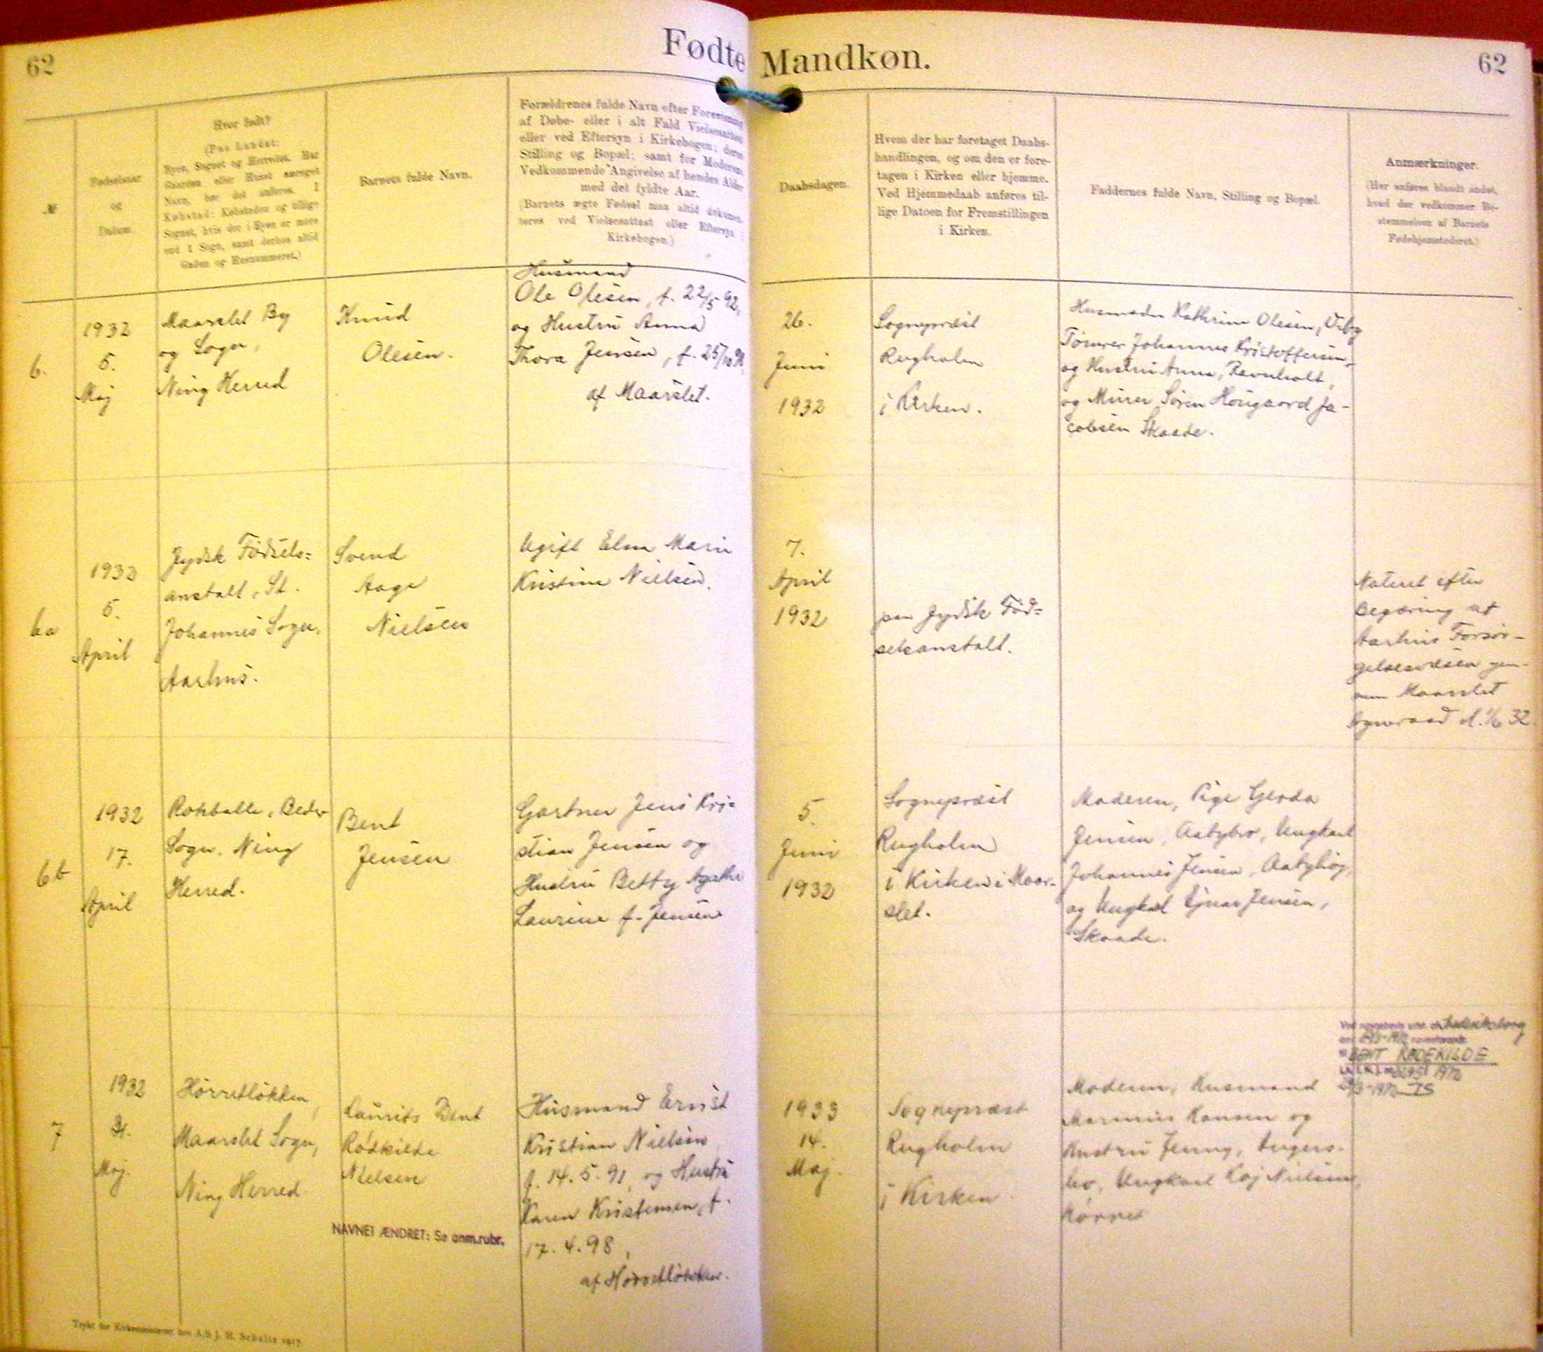 62
Fødte
Mandkøn.
62
№
Fødselsaar
og
Datum.
Hvor født?
(Paa Landet:
Byen, Sognet og Herredet. Har
Gaarden eller Huset særeget
Navn, bør det anføres. I
Købstad: Købstaden og tillige
Sognet, hvis der i Byen er mere
end 1 Sogn, samt derhos altid
Gaden og Husnummeret.)
Barnets fulde Navn.
Forældrenes fulde Navn efter Forevisning
af Døbe- eller i alt Fald Vielsesattest
eller ved Eftersyn i Kirkebogen; deres
Stilling og Bopæl; samt for Moderens
Vedkommende Angivelse af hendes Alder
med det fyldte Aar.
(Barnets ægte Fødsel maa altid dokumen-
teres ved Vielsesattest eller Eftersyn i
Kirkebogen.)
Daabsdagen.
Hvem der har foretaget Daabs-
handlingen, og om den er fore-
tagen i Kirken eller hjemme.
Ved Hjemmedaab anføres til-
lige Datoen for Fremstillingen
i Kirken.
Faddernes fulde Navn, Stilling og Bopæl.
Anmærkninger.
(Her anføres blandt andet,
hvad der vedkommer Be-
stemmelsen af Barnets
Fødehjemstederet.)
6.
1932
5.
Maj
Maarslet By
og Sogn,
Ning Herred
Knud
Olesen.
Husmand
Ole Olesen, f. 22/5 92,
og Hustru Anna
Thora Jensen, f. 25/10
af Maarslet.
26.
Juni
1932
Sognepræst
Rugholm
i Kirken.
Husmoder Kathrine Olesen, Viby
Tømrer Johannes Kristoffersen,
og Hustru Anna, Ravnholt,
og Murer Søren Hougaard Ja-
cobsen Skaade.
6a
1932
5.
April
Jydsk Fødsels=
anstalt, St.
Johannes Sogn,
Aarhus.
Svend
Aage
Nielsen
Ugift Elna Marie
Kristine Nielsen.
7.
April
1932
paa Jydsk Fød=
selsanstalt.
Noteret efter
Begæring af
Aarhus Forsør-
gelsesvæsen gen-
nem Maarslet
Sogneraad d. 1/6 32.
6b
1932
17.
April
Rokballe, Beder
Sogn, Ning
Herred.
Bent
Jensen
Gartner Jens Kri=
stian Jensen og
Hustru Betty Agathe
Laurine f. Jensen
5.
Juni
1932
Sognepræst
Rugholm
i Kirken i Maar-
slet.
Moderen, Pige Gerda
Jensen, Aabybro, Ungkarl
Johannes Jensen, Aabyhøj,
og Ungkarl Ejnar Jensen,
Skaade.
7
1932
Maj
Hørretløkken,
Maarslet Sogn,
Ning Herred
Laurits Bent
Rødkilde
Nielsen
NAVNET ÆNDRET: Se anm.rubr.
Husmand Ernst
Kristian Nielsen
f. 14.5.91, og Hustru
Karen Kristensen, f.
17.4.98,
af Hørretløkken.
1933
14.
Maj.
Sognepræst
Rugholm
i Kirken
Moderen, Husmand
Marinus Hansen og
Hustru Jenny,
Ungkarl Kaj Nielsen,
Hørret
Frederiksborg
BENT RØDEKILDE
Trykt for Kirkeministeriet hos A/S J. H. Schultz 1917.